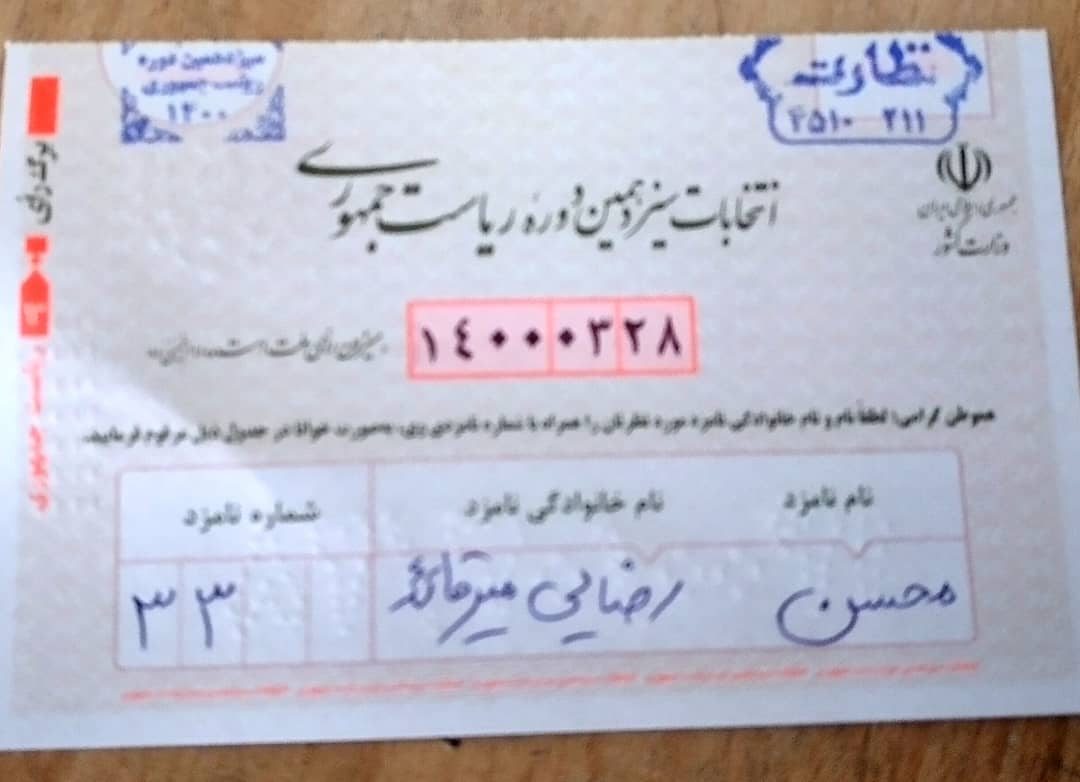 سیزدهمین دوره
ریاست جمهوری
۱۴۰۰
نظارت
۲۱۱ ۲۵۱۰
جمهوری اسلامی ایران
وزارت کشور
انتخابات سیزدهمین دوره ریاست جمهوری
۱۴۰۰۰۳۲۸
میزان رأی ملت است
لطفاً نام و نام خانوادگی نامزد مورد نظرتان را همراه با شماره نامزدی وی، به‌صورت خوانا در جدول ذیل مرقوم فرمایید.
نام نامزد
نام خانوادگی نامزد
شماره نامزد
محسن
رضایی میرقائد
۳۳
برگ رأی
ریاست جمهوری